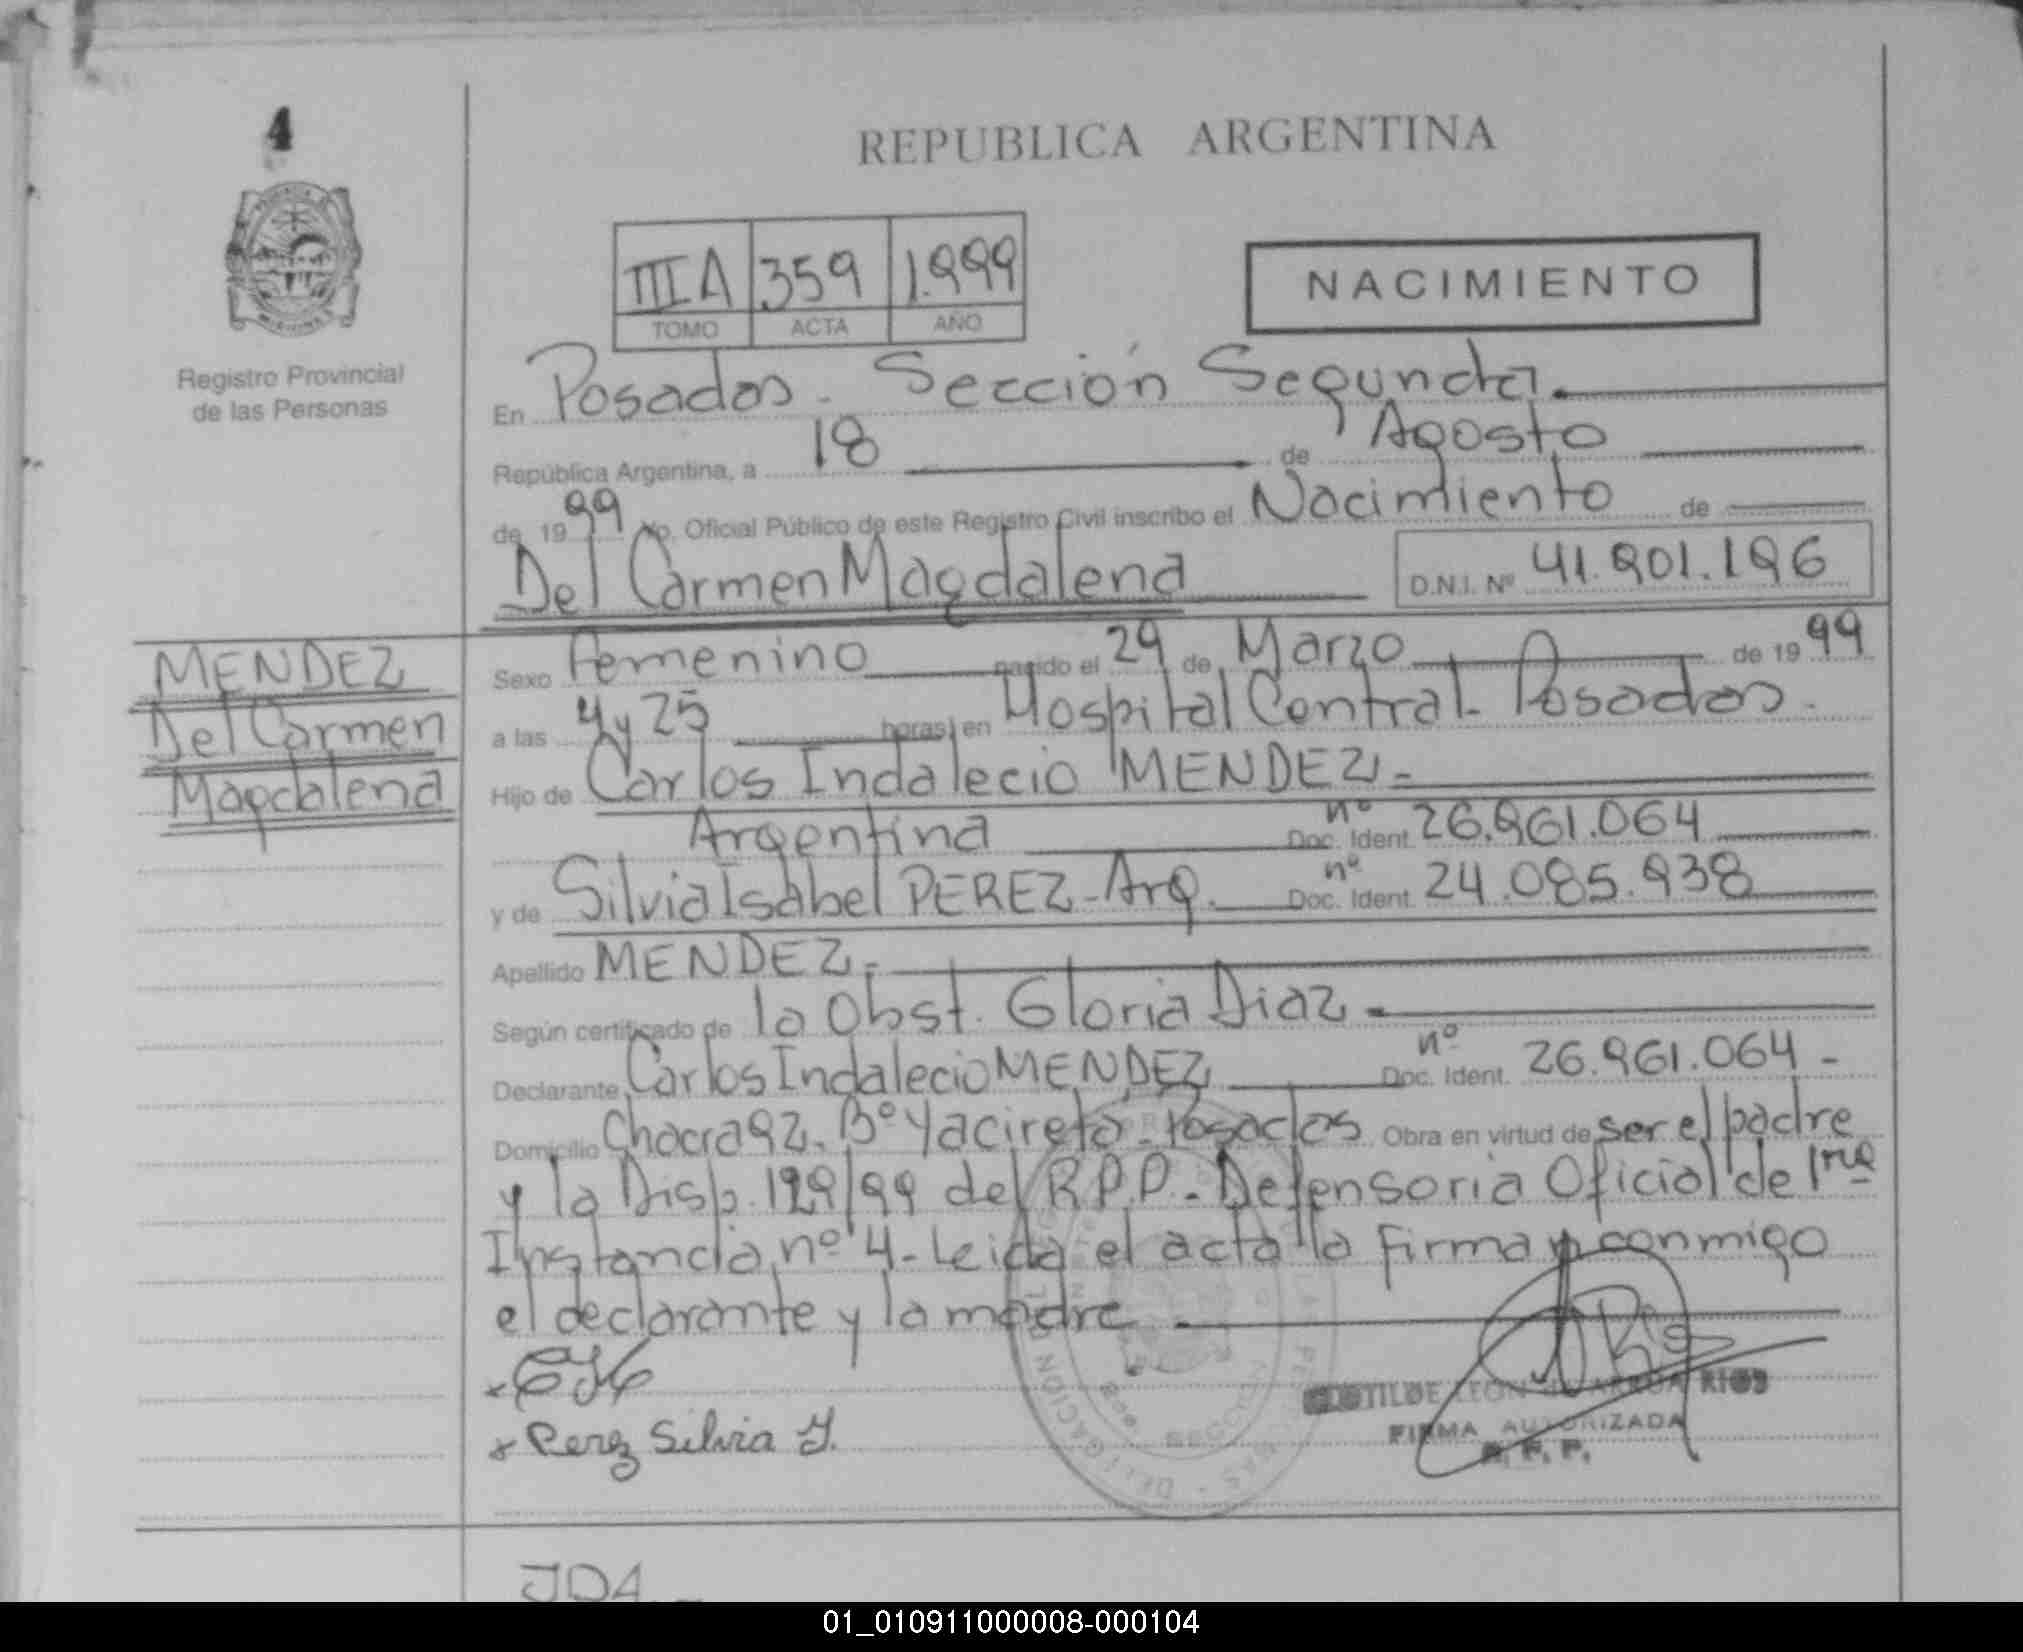 4
REPUBLICA ARGENTINA
IIIA 359 1.999
TOMO ACTA AÑO
NACIMIENTO
Registro Provincial
de las Personas
En Posadas. Sección Segunda.
República Argentina, a 18 de Agosto
de 1999 Yo, Oficial Público de este Registro Civil inscribo el Nacimiento de
Del Carmen Magdalena D.N.I. Nº 41.901.196
MENDEZ
Del Carmen
Magdalena
Sexo Femenino nacido el 29 de Marzo de 1999
a las 4 y 25 horas, en Hospital Central - Posadas.
Hijo de Carlos Indalecio MENDEZ.-
Argentina Doc. Ident. nº 26.961.064
y de Silvia Isabel PEREZ - Arg. Doc. Ident. nº 24.085.938
Apellido MENDEZ.-
Según certificado de la Obst. Gloria Diaz.-
Declarante Carlos Indalecio MENDEZ Doc. Ident. nº 26.961.064 -
Domicilio Chacra 92. Bº Yacireta - Posadas Obra en virtud de ser el padre
y la Disp. 129/99 del R.P.P. - Defensoria Oficial de 1ra
Instancia nº 4 - Leida el acta la firman conmigo
el declarante y la madre
x Perez Silvia I.
CLOTILDE LEON RIOS
FIRMA AUTORIZADA
R. P. P.
DELEGACION
SECCION
01_010911000008-000104